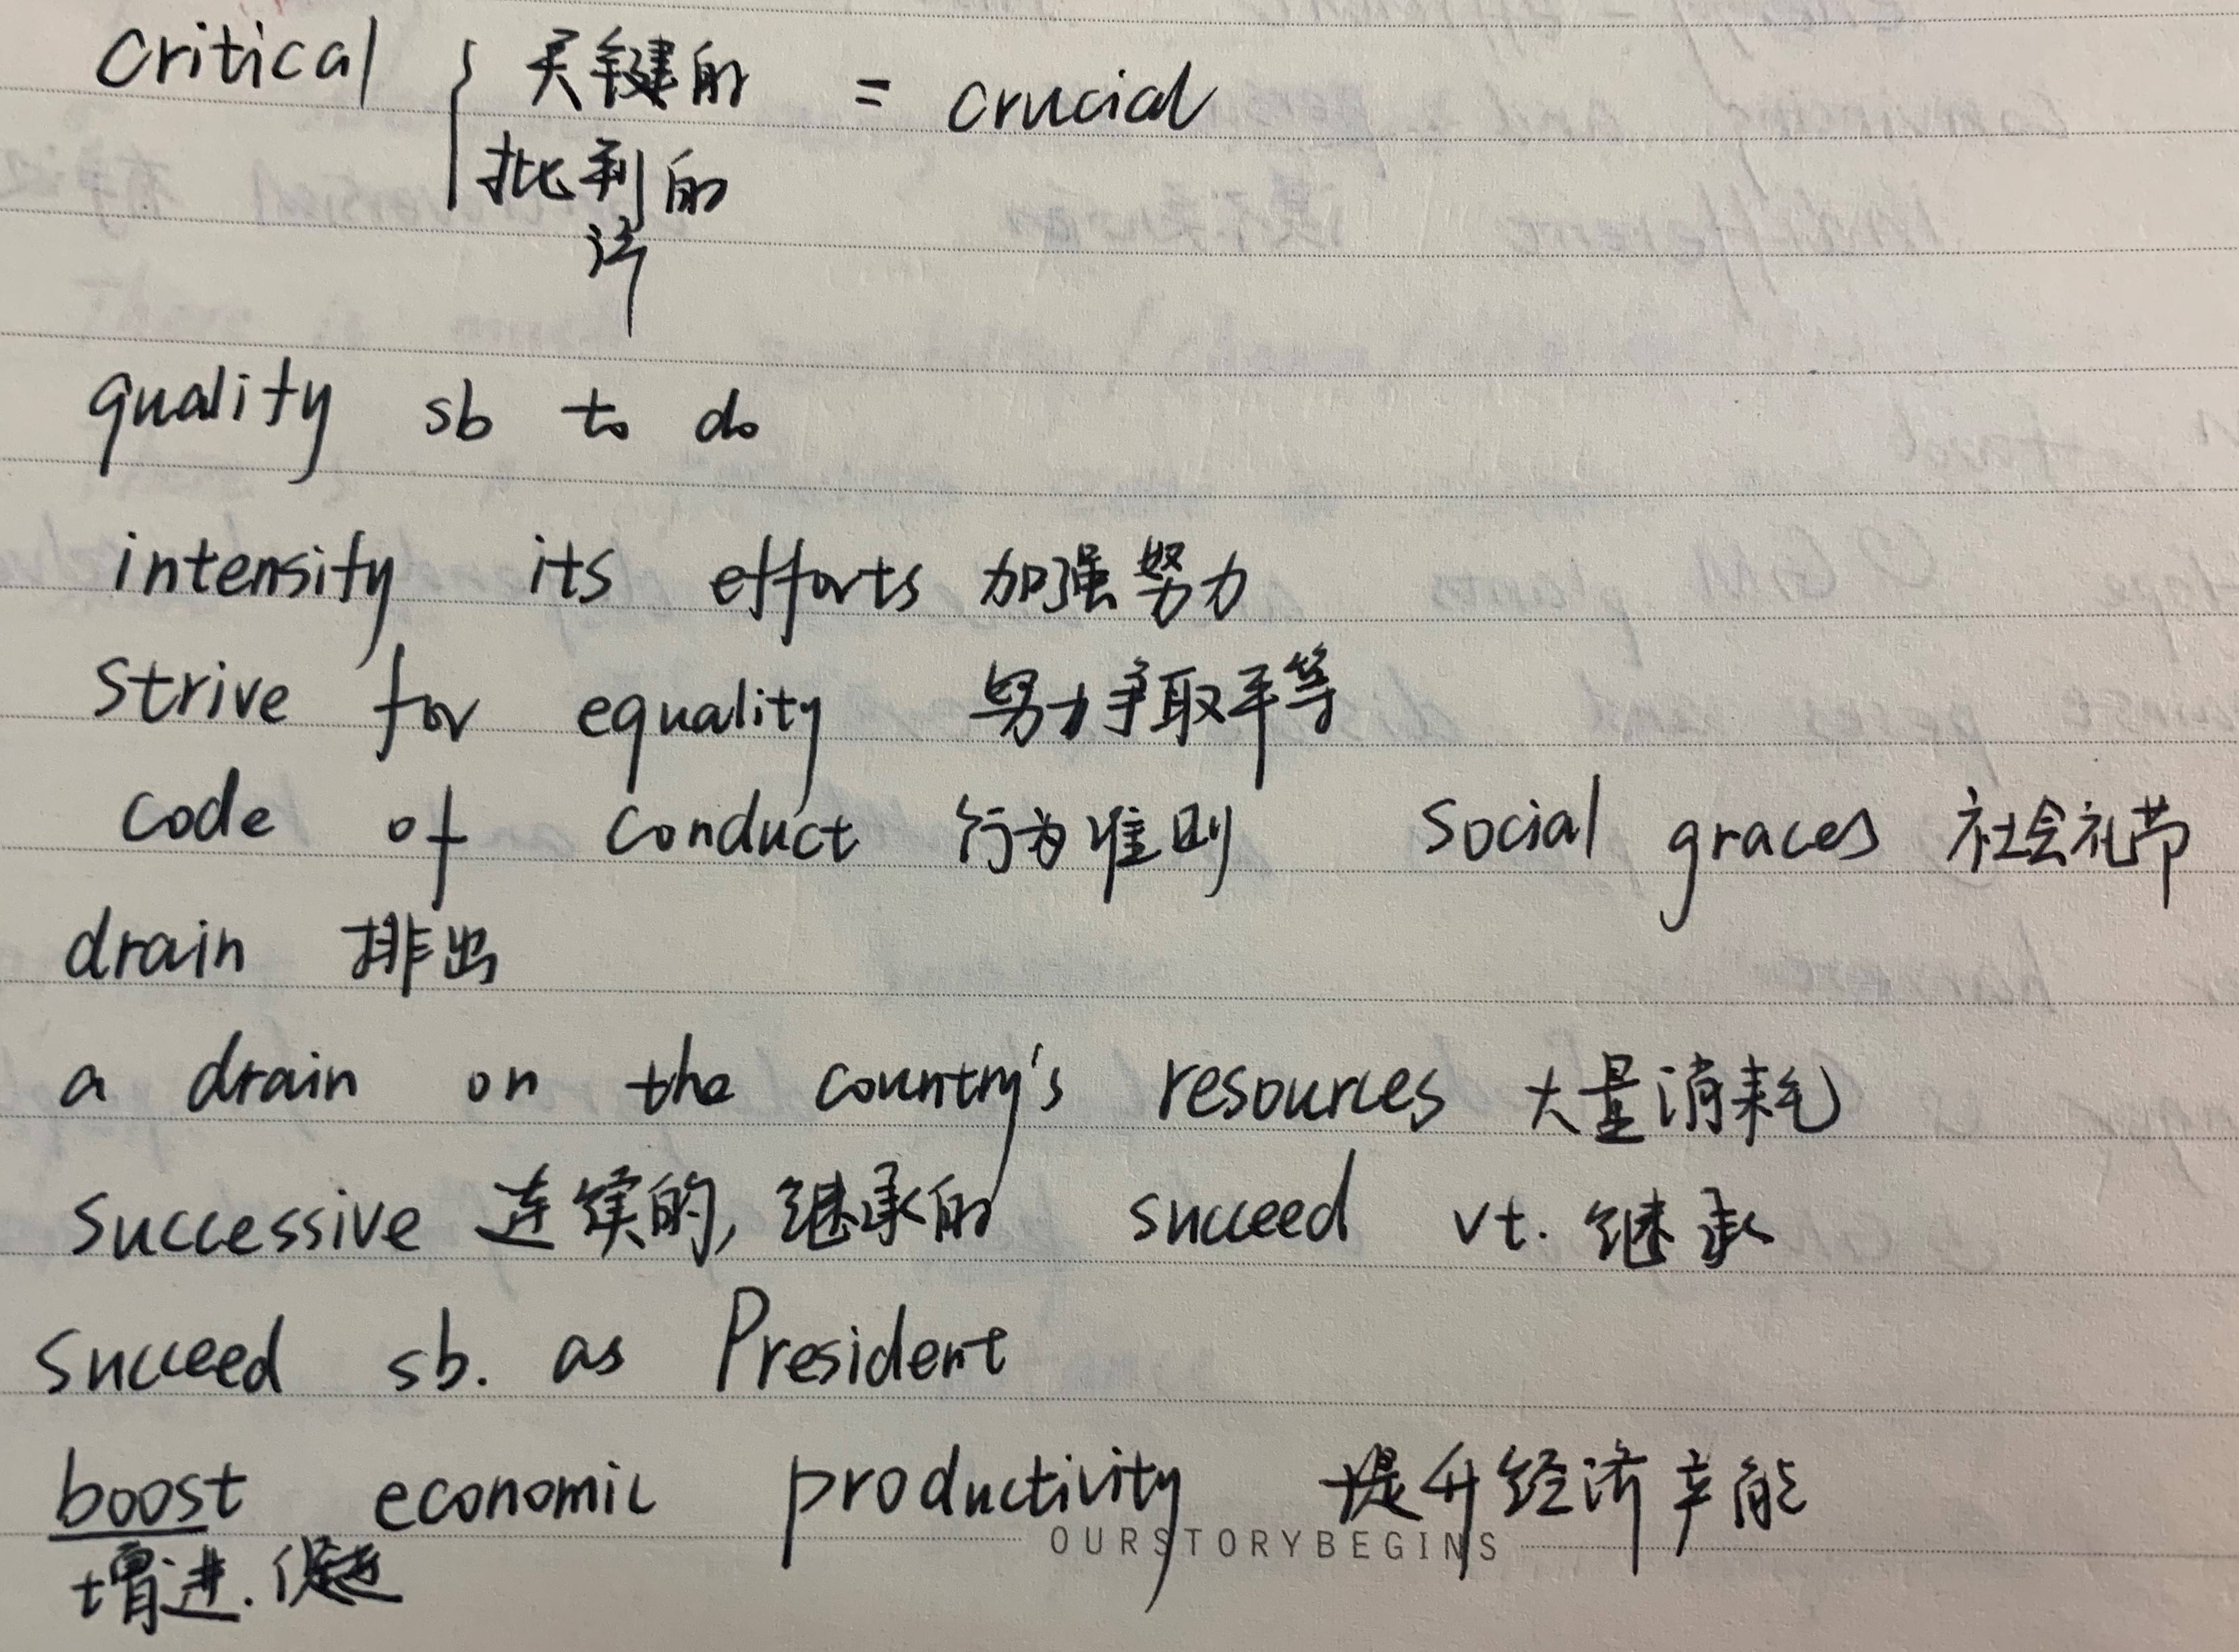 critical { 关键的 = crucial
批判的
评
quality sb to do
intensity its efforts 加强努力
strive for equality 努力争取平等
code of conduct 行为准则 social graces 社会礼节
drain 排出
a drain on the country's resources 大量消耗
successive 连续的, 继承的 succeed vt. 继承
succeed sb. as President
boost economic productivity 提升经济产能
OURSTORYBEGINS
增进.促进